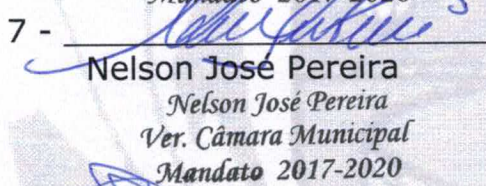 Mandato 2017-2020
7 -
Nelson José Pereira
Nelson José Pereira
Ver. Câmara Municipal
Mandato 2017-2020